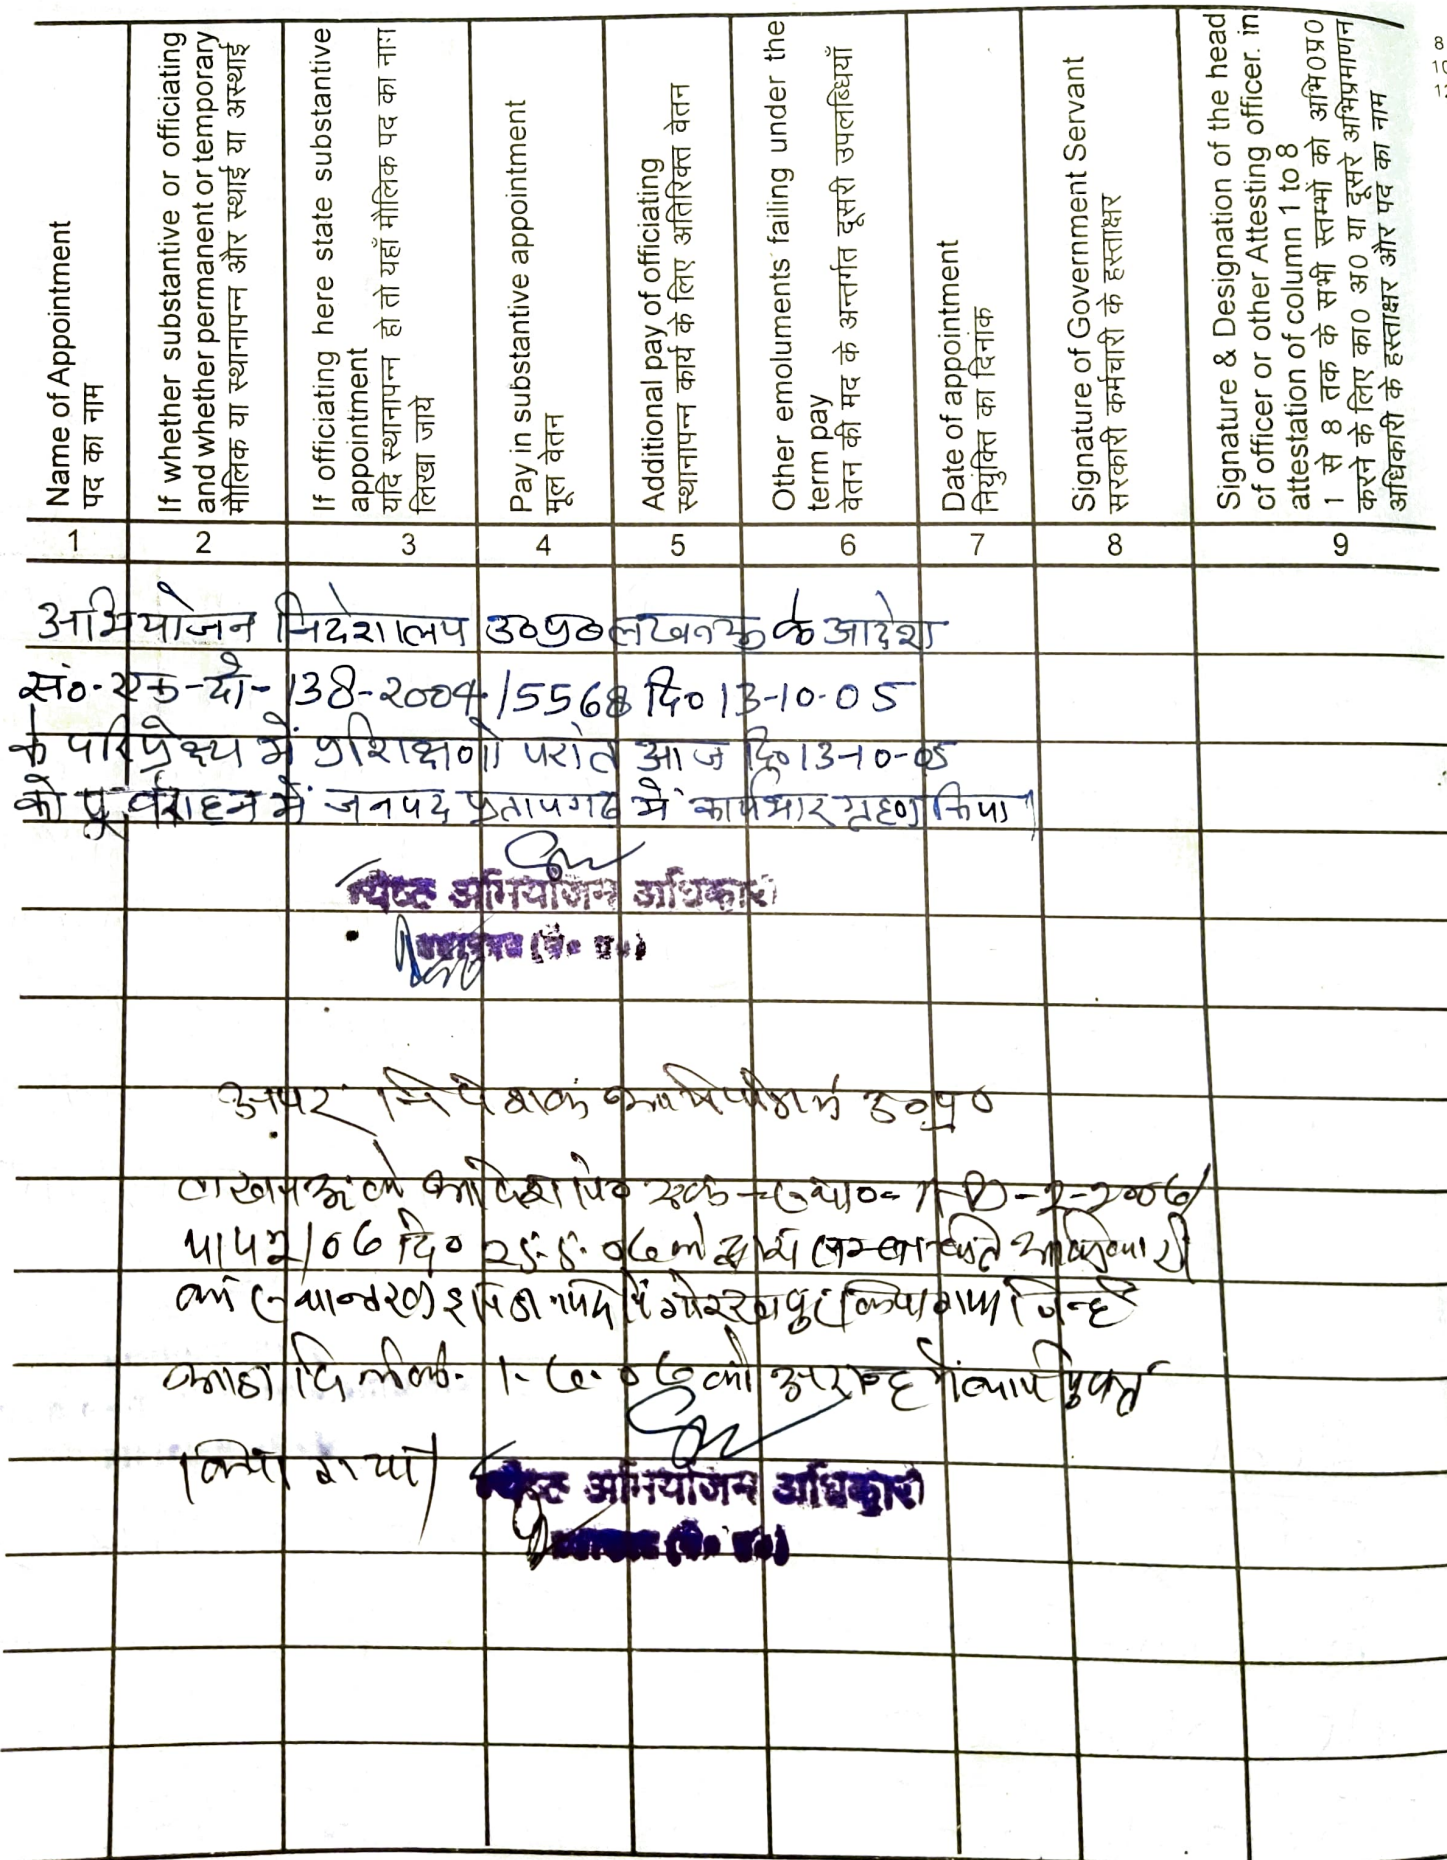 Name of Appointment
पद का नाम
If whether substantive or officiating
and whether permanent or temporary
मौलिक या स्थानापन्न और स्थाई या अस्थाई
If officiating here state substantive
appointment
यदि स्थानापन्न हो तो यहाँ मौलिक पद का नाग
लिखा जाये
Pay in substantive appointment
मूल वेतन
Additional pay of officiating
स्थानापन्न कार्य के लिए अतिरिक्त वेतन
Other emoluments failing under the
term pay
वेतन की मद के अन्तर्गत दूसरी उपलब्धियाँ
Date of appointment
नियुक्ति का दिनाक
Signature of Government Servant
सरकारी कर्मचारी के हस्ताक्षर
Signature & Designation of the head
of officer or other Attesting officer. in
attestation of column 1 to 8
1 से 8 तक के सभी स्तम्भों को अभि0प्र0
करने के लिए का0 अ0 या दूसरे अभिप्रमाणन
अधिकारी के हस्ताक्षर और पद का नाम
1 2 3 4 5 6 7 8 9
अभियोजन निदेशालय उ०प्र० लखनऊ के आदेश
सं०-एक-दो-138-2004/5568 दि० 13-10-05
के परिप्रेक्ष्य में प्रशिक्षणोपरांत आज दि० 13-10-05
को पूर्वाह्न में जनपद प्रतापगढ में कार्यभार ग्रहण किया
ज्येष्ठ अभियोजन अधिकारी
अपर निदेशक अभियोजन उ०प्र०
लखनऊ के आदेश
दि०
गोरखपुर किया गया जिन्हें
को अपरान्ह में कार्यमुक्त
किया गया
ज्येष्ठ अभियोजन अधिकारी